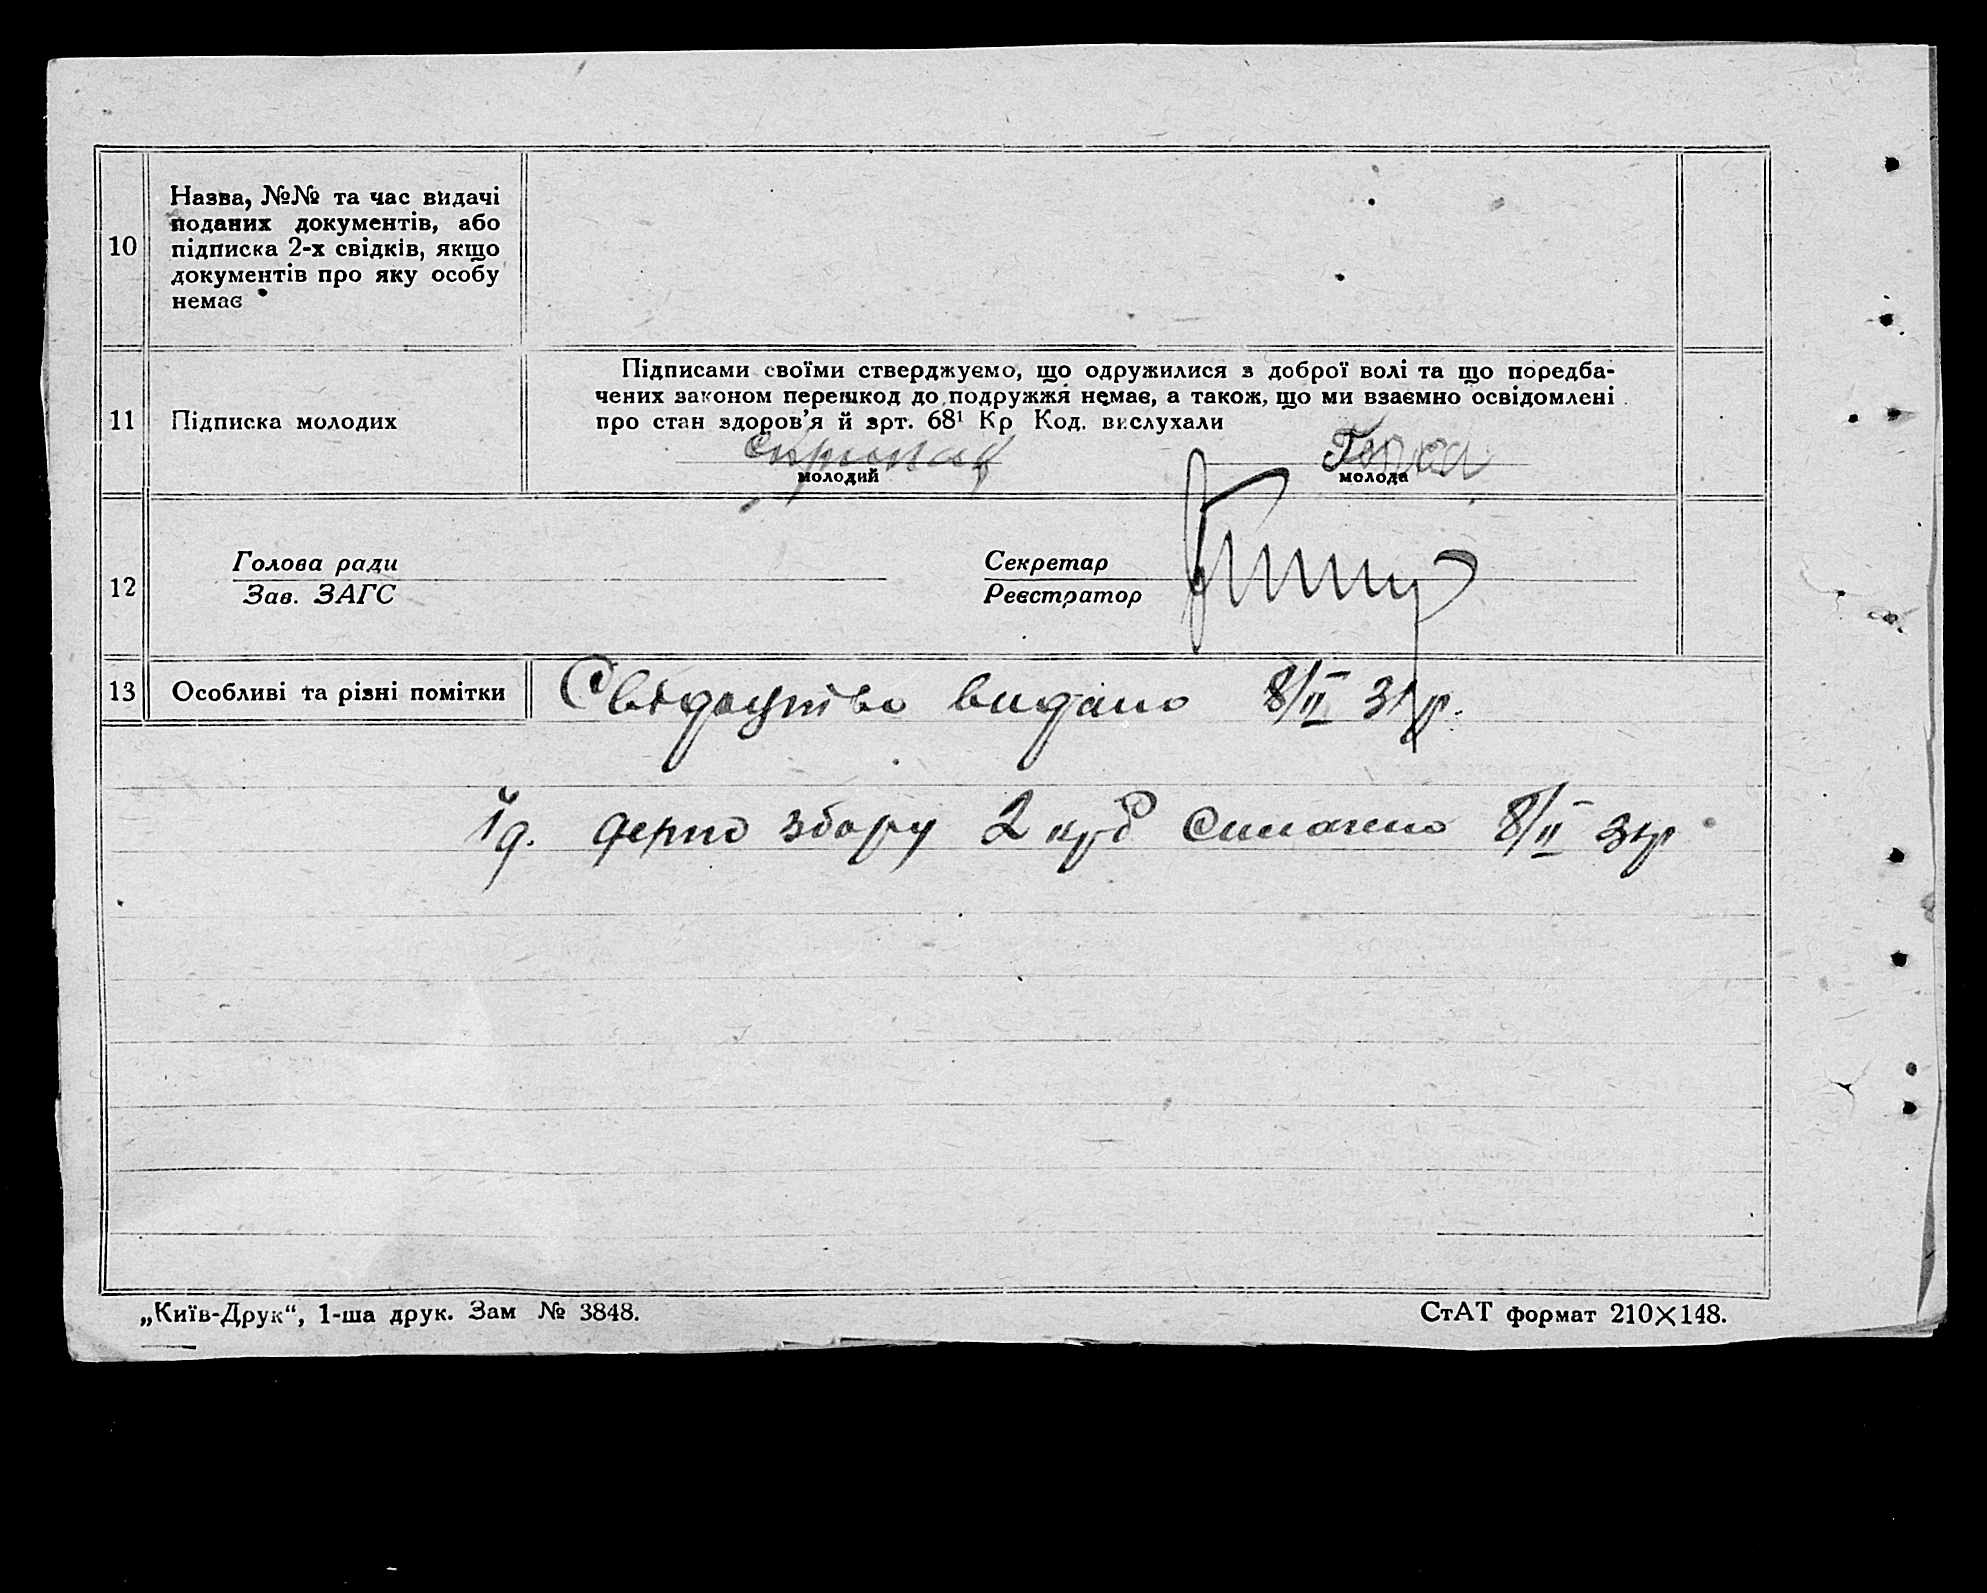 10
Назва, №№ та час видачі
поданих документів, або
підписка 2-х свідків, якщо
документів про яку особу
немає
11
Підписка молодих
Підписами своїми стверджуємо, що одружилися з доброї волі та що поредба-
чених законом перешкод до подружжя немає, а також, що ми взаємно освідомлені
про стан здоров'я й арт. 68¹ Кр Код. вислухали
молодий
молода
12
Голова ради
Зав. ЗАГС
Секретар
Реєстратор
13
Особливі та різні помітки
Свідоцтво видано 8/II 31р.
збору 2 крб 8/II 31р
„Київ-Друк“, 1-ша друк. Зам № 3848.
СтАТ формат 210×148.